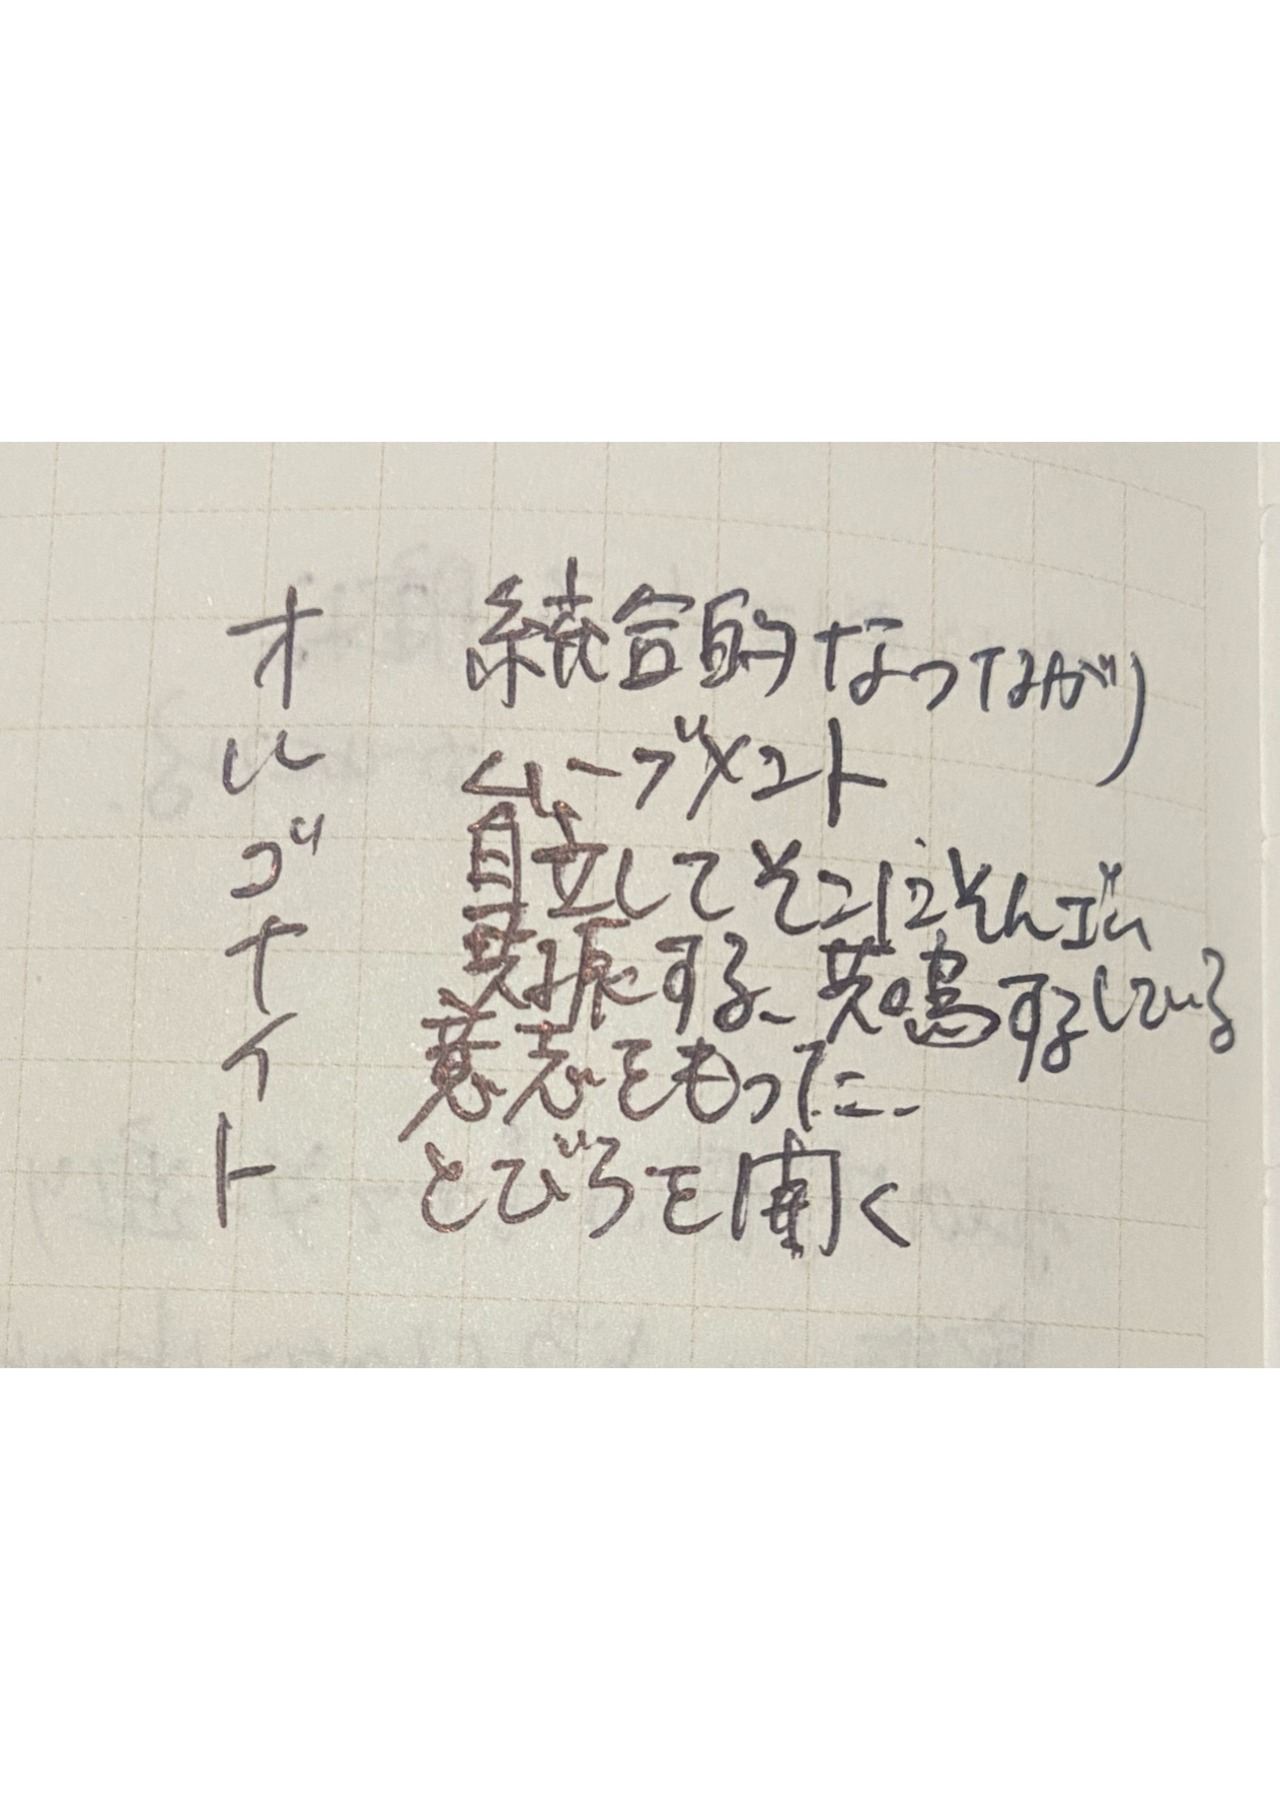 オ 結合的なつながり
ル ムーブメント
ゴ 自立してそこにそん
ナ 共振する、共鳴するしている
イ 意志をもった
ト とびらを開く